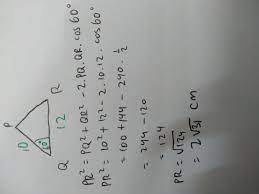 P
R
10
12
60°
Q
PR² = PQ² + QR² - 2.PQ.QR.cos 60°
PR² = 10² + 12² - 2.10.12.cos 60°
= 100 + 144 - 240 . 1/2
= 244 - 120
= 124
PR = √124
= 2√31 cm